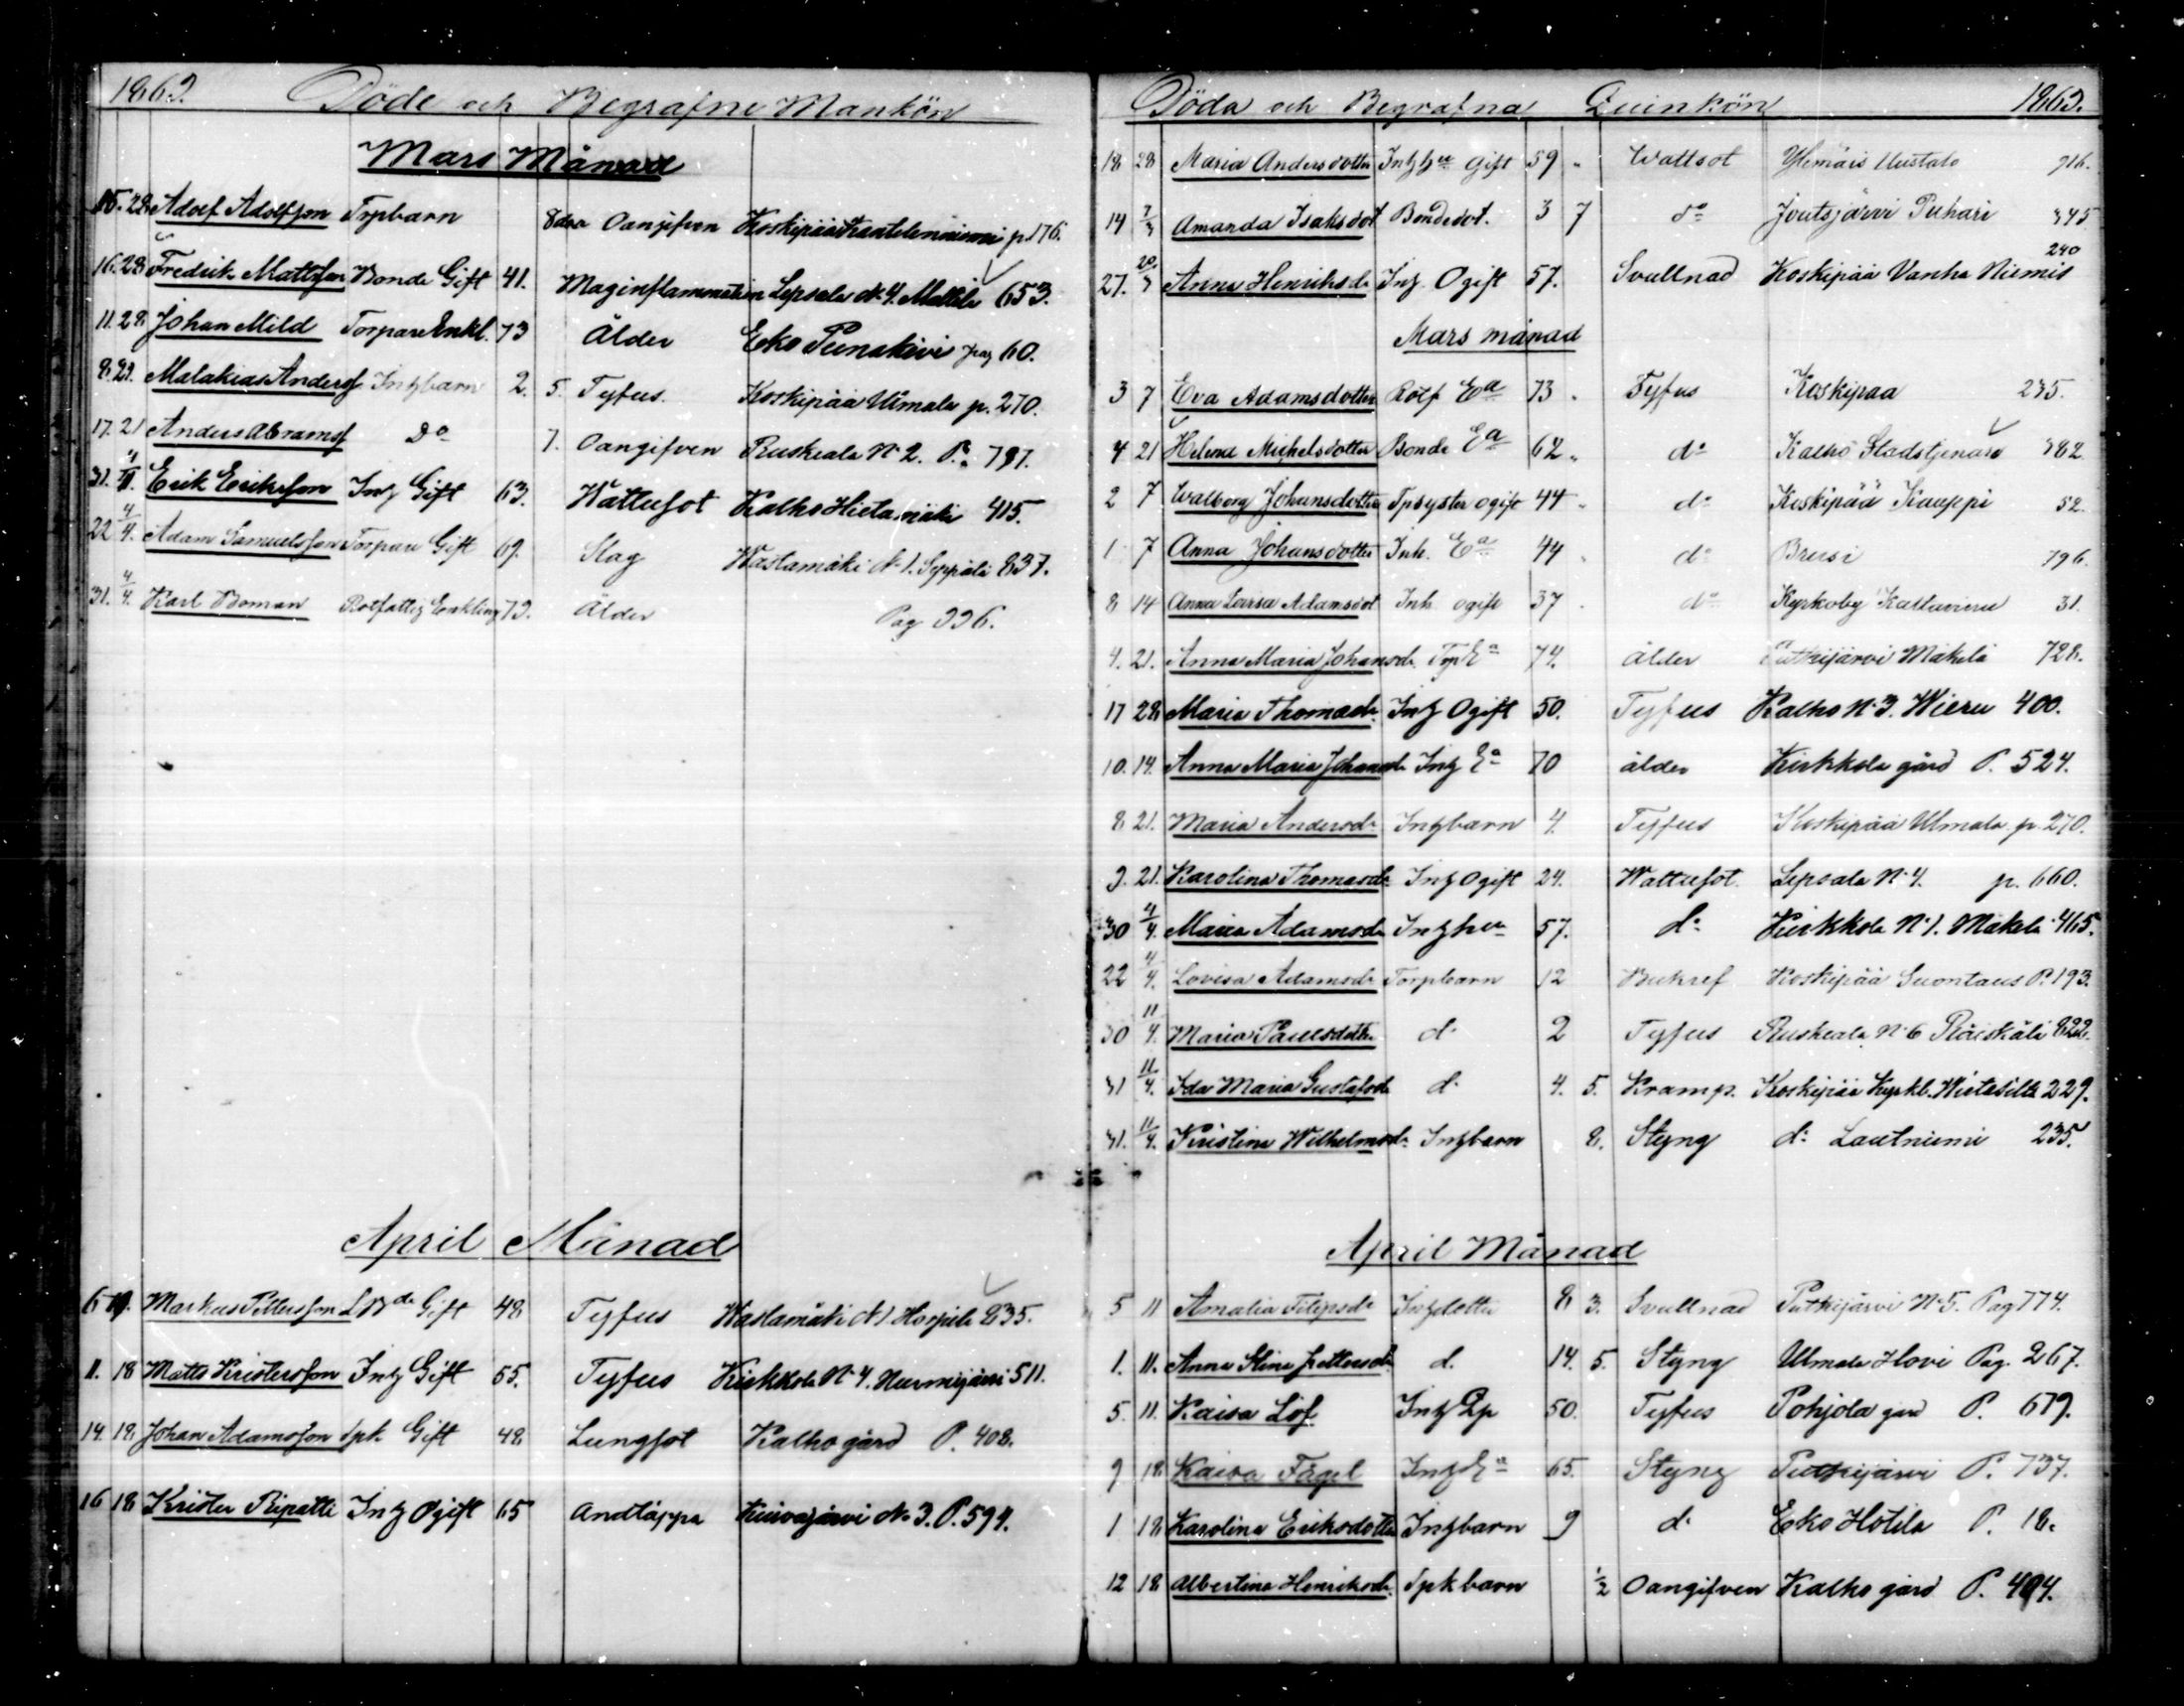 1869. Döde och Begrafne Mankön
Mars Månad
15. 28 Adolf Adolfson Torpbarn 8 dar Oangifven Koskipää Kantelenniemi p. 176.
16. 28 Fredrik Mattsson Bonde Gift 41. Maginflammation Sepsala N. 4. Mattila 653.
11. 28 Johan Mild Torpare Enkl. 73 Ålder Eko Punakivi pag 60.
8. 29. Malakias Andersf Inhbarn 2. 5. Tyfus Koskipää Ulmala p. 270.
17. 21 Anders Abramsf Do 7. Oangifven Ruskeala N 2. P. 797.
31. Erik Eriksson Inh Gift 63. Wattusot Kalho Hietamäki 415.
22 4/4. Adam Samuelsson Torpare Gift 69. Slag Wastamäki N 1. Seppälä 837.
31. 4/4. Karl Boman Rotfattig Enkling 73. Ålder Pag 336.
April Månad
6 Markus Pettersson Gift 48 Tyfus Wastamäki N 1. Horpila 835.
11. 18 Matts Kristersson Inh Gift 55. Tyfus Kirkkola N 4. Nurmijärvi 511.
14. 18. Johan Adamsson Spk Gift 48 Lungsot Kalho gård P. 408.
16 18 Krister Ripatti Inh Ogift 65 Andtäppa Kuivajärvi No 3. P. 594.
Döda och Begrafna Quinkön 1869.
18 28 Maria Andersdotter Inhhu Gift 59 " Wattsot Ylemäis Uustalo 716.
14 7/3 Amanda Isaksdot Bondedot. 3 7 do Joutsjärvi Puhari 345
240
27. Anna Henriksdr Inh Ogift 57. Svullnad Koskipää Vanha Niemis
Mars månad
3 7 Eva Adamsdotter Rotf Ea 73 . Tyfus Koskipää 235.
4 21 Helena Michelsdotter Bonde Ea 62 " do Kalho Stadstjenare 382.
2 7 Walborg Johansdotter Tpsyster ogift 44 " do Koskipää Kauppi 52.
1 7 Anna Johansdotter Inh. Ea 44 do Brusi 796.
8 14 Anna Lovisa Adamsdot Inh ogift 37 do Kyrkoby Kattavieru 31.
4. 21. Anna Maria Johansdr. Torp Ea 74. ålder Putkijärvi Mäkelä 728.
17 28 Maria Thomasdr. Inh Ogift 50. Tyfus Kalho N 3. Wieru 400.
10. 14. Anna Maria Johansdr Inh Ea 70 ålder Kirkkola gård P. 524.
8 21. Maria Andersdr Inhbarn 4. Tyfus Koskipää Ulmala p. 270.
9. 21. Karolina Thomasdr Inh Ogift 24. Wattusot Sepsala N 4. p. 660.
30 4/4. Maria Adamsdr Inhhu 57. do Kirkkola N 1. Mäkelä 465.
22 4/4. Lovisa Adamsdr Torpbarn 12 Koskipää Suontaus P. 193.
30 11/4. Maria Paulsdotter d. 2 Tyfus Ruskeala N 6 Räiskälä 822.
31 11/4. Ida Maria Gustafsdr d. 4. 5. Kramp. Koskipää Kyrkb. Wirtasilta 229.
31. 11/4. Kristina Wilhelmsdr. Inhbarn 8. Styng d: Lautniemi 235.
April Månad
5 11 Amalia Filipsdr Inhdotter 8 3. Svullnad Putkijärvi N 5. Pag 774.
1. 11. Anna Stina Pettersdr d. 14. 5. Styng Ulmala Hovi Pag. 267.
5. 11. Kaisa Löf Inh 50. Tyfus Pohjola gård P. 679.
9 18 Kaisa Fagel Inh Ea 65. Styng Putkijärvi P. 737.
1 18 Karolina Eriksdotter Inhbarn 9 d. Eko Hotila P. 18.
12 18 Albertina Henriksdr Spkbarn 1/2 Oangifven Kalho gård P. 404.